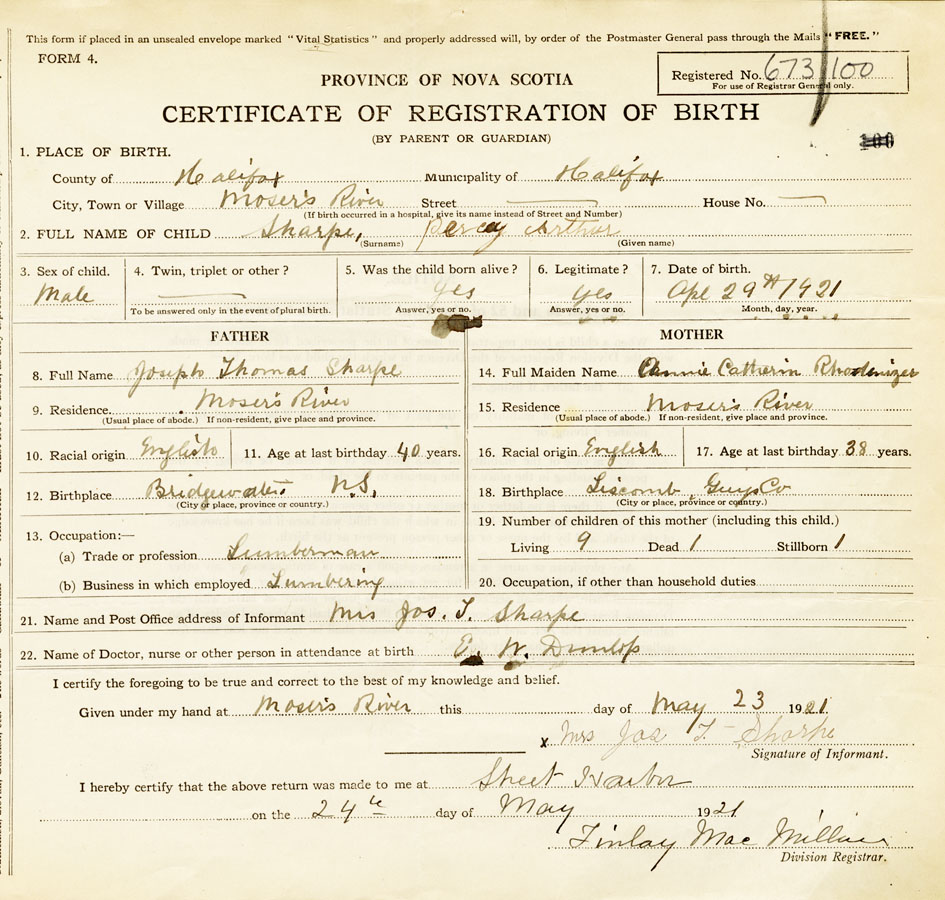 This form if placed in an unsealed envelope marked "Vital Statistics" and properly addressed will, by order of the Postmaster General pass through the Mails "FREE."
FORM 4.
Registered No. 673100
For use of Registrar General only.
PROVINCE OF NOVA SCOTIA
CERTIFICATE OF REGISTRATION OF BIRTH
(BY PARENT OR GUARDIAN)
100
1. PLACE OF BIRTH.
County of Halifax Municipality of Halifax
City, Town or Village Moser's River Street — House No. —
(If birth occurred in a hospital, give its name instead of Street and Number)
2. FULL NAME OF CHILD Sharpe, Percy Arthur
(Surname) (Given name)
3. Sex of child. 4. Twin, triplet or other? 5. Was the child born alive? 6. Legitimate? 7. Date of birth.
Male — yes yes Apl 29th 1921
To be answered only in the event of plural birth. Answer, yes or no. Answer, yes or no. Month, day, year.
FATHER
8. Full Name Joseph Thomas Sharpe
9. Residence. Moser's River
(Usual place of abode.) If non-resident, give place and province.
10. Racial origin English 11. Age at last birthday 40 years.
12. Birthplace Bridgewater N.S.
(City or place, province or country.)
13. Occupation:—
(a) Trade or profession Lumberman
(b) Business in which employed Lumbering
MOTHER
14. Full Maiden Name Annie Catherin Rhodenizer
15. Residence Moser's River
(Usual place of abode.) If non-resident, give place and province.
16. Racial origin English 17. Age at last birthday 38 years.
18. Birthplace Liscomb Guys Co
(City or place, province or country.)
19. Number of children of this mother (including this child.)
Living 9 Dead 1 Stillborn 1
20. Occupation, if other than household duties
21. Name and Post Office address of Informant Mrs Jos. T. Sharpe
22. Name of Doctor, nurse or other person in attendance at birth E. W. Dunlop
I certify the foregoing to be true and correct to the best of my knowledge and belief.
Given under my hand at Moser's River this day of May 23 1921
x Mrs Jos T Sharpe
Signature of Informant.
I hereby certify that the above return was made to me at Sheet Harbor
on the 24th day of May 1921
Finlay MacMillan
Division Registrar.